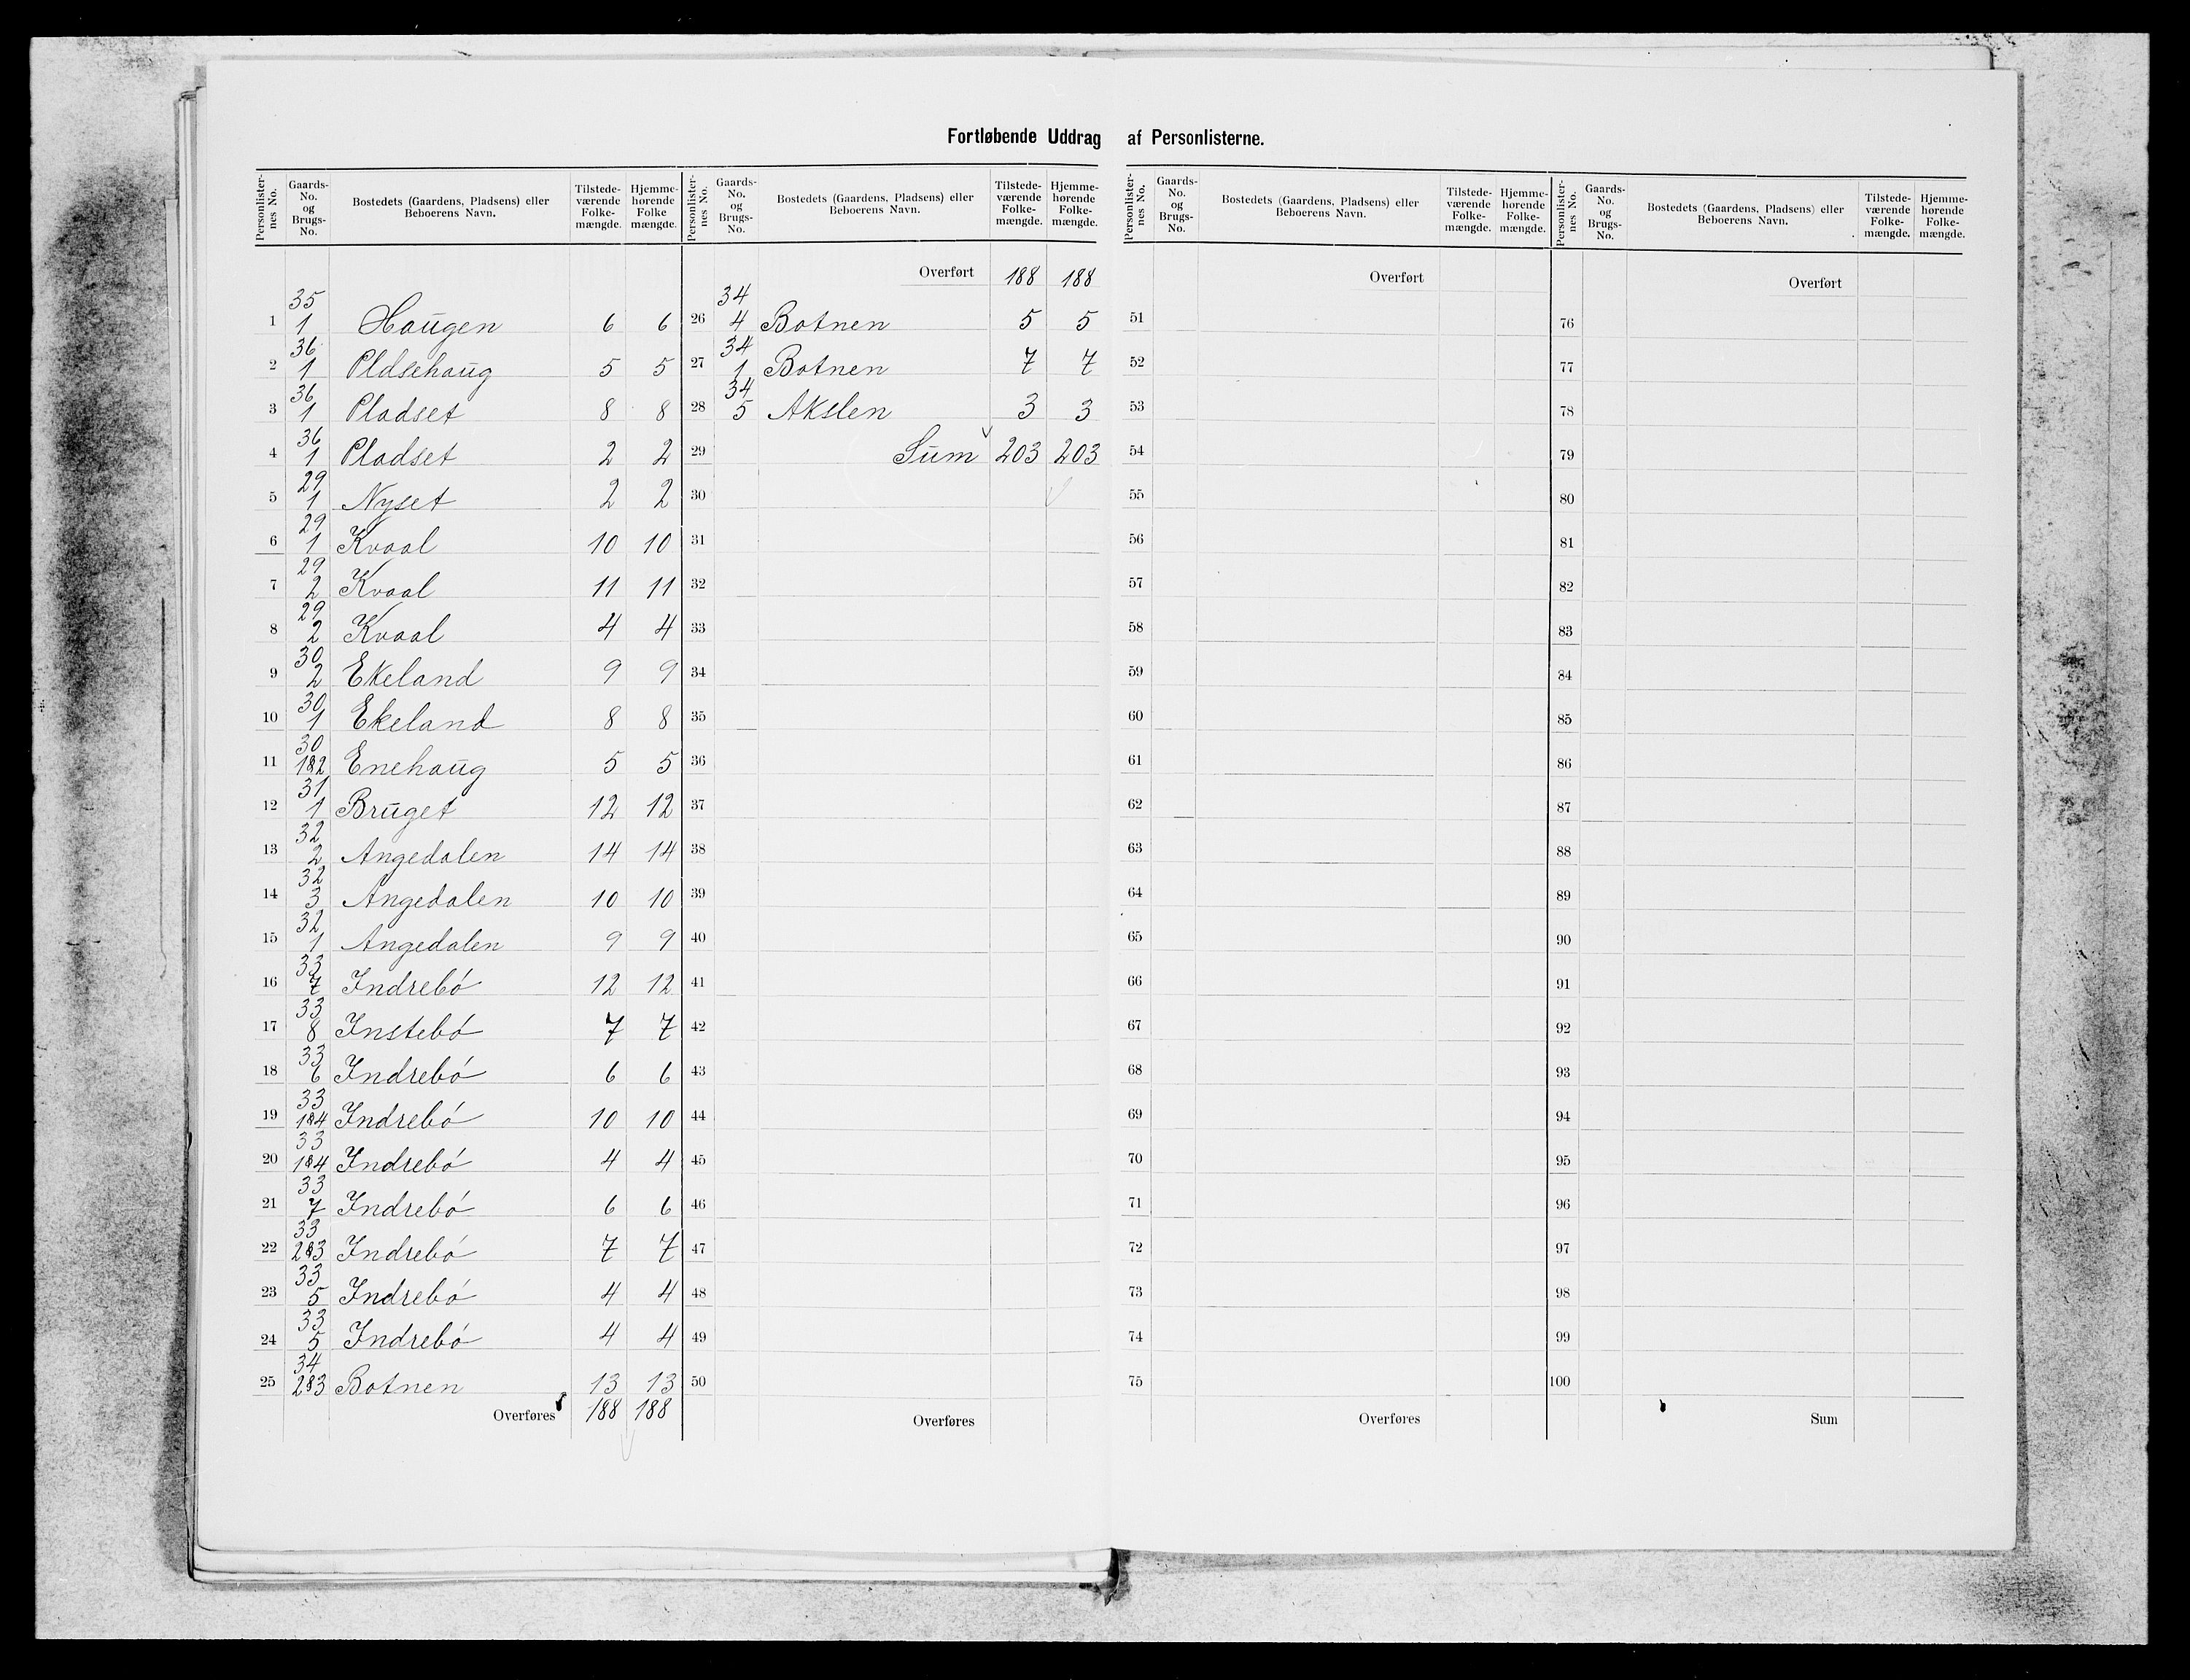 Fortløbende Uddrag af Personlisterne.
Personlisternes No. Gaards-No. og Brugs-No. Bostedets (Gaardens, Pladsens) eller Beboerens Navn. Tilstedeværende Folkemængde. Hjemmehørende Folkemængde.
35
1 1 Haugen 6 6
36
2 1 Pldsehaug 5 5
36
3 1 Pladset 8 8
36
4 1 Pladset 2 2
29
5 1 Nyset 2 2
29
6 1 Kvaal 10 10
29
7 2 Kvaal 11 11
29
8 2 Kvaal 4 4
30
9 2 Ekeland 9 9
30
10 1 Ekeland 8 8
30
11 1&2 Enehaug 5 5
31
12 1 Bruget 12 12
32
13 2 Angedalen 14 14
32
14 3 Angedalen 10 10
32
15 1 Angedalen 9 9
33
16 7 Indrebó 12 12
33
17 8 Instebó 7 7
33
18 6 Indrebó 6 6
33
19 1&4 Indrebó 10 10
33
20 1&4 Indrebó 4 4
33
21 7 Indrebó 6 6
33
22 2&3 Indrebó 7 7
33
23 5 Indrebó 4 4
33
24 5 Indrebó 4 4
34
25 2&3 Botnen 13 13
Overføres 188 188
Personlisternes No. Gaards-No. og Brugs-No. Bostedets (Gaardens, Pladsens) eller Beboerens Navn. Tilstedeværende Folkemængde. Hjemmehørende Folkemængde.
Overført 188 188
34
26 4 Botnen 5 5
34
27 1 Botnen 7 7
34
28 5 Akslen 3 3
29 Sum 203 203
30
31
32
33
34
35
36
37
38
39
40
41
42
43
44
45
46
47
48
49
50
Overføres
Personlisternes No. Gaards-No. og Brugs-No. Bostedets (Gaardens, Pladsens) eller Beboerens Navn. Tilstedeværende Folkemængde. Hjemmehørende Folkemængde.
Overført
51
52
53
54
55
56
57
58
59
60
61
62
63
64
65
66
67
68
69
70
71
72
73
74
75
Overføres
Personlisternes No. Gaards-No. og Brugs-No. Bostedets (Gaardens, Pladsens) eller Beboerens Navn. Tilstedeværende Folkemængde. Hjemmehørende Folkemængde.
Overført
76
77
78
79
80
81
82
83
84
85
86
87
88
89
90
91
92
93
94
95
96
97
98
99
100
Sum